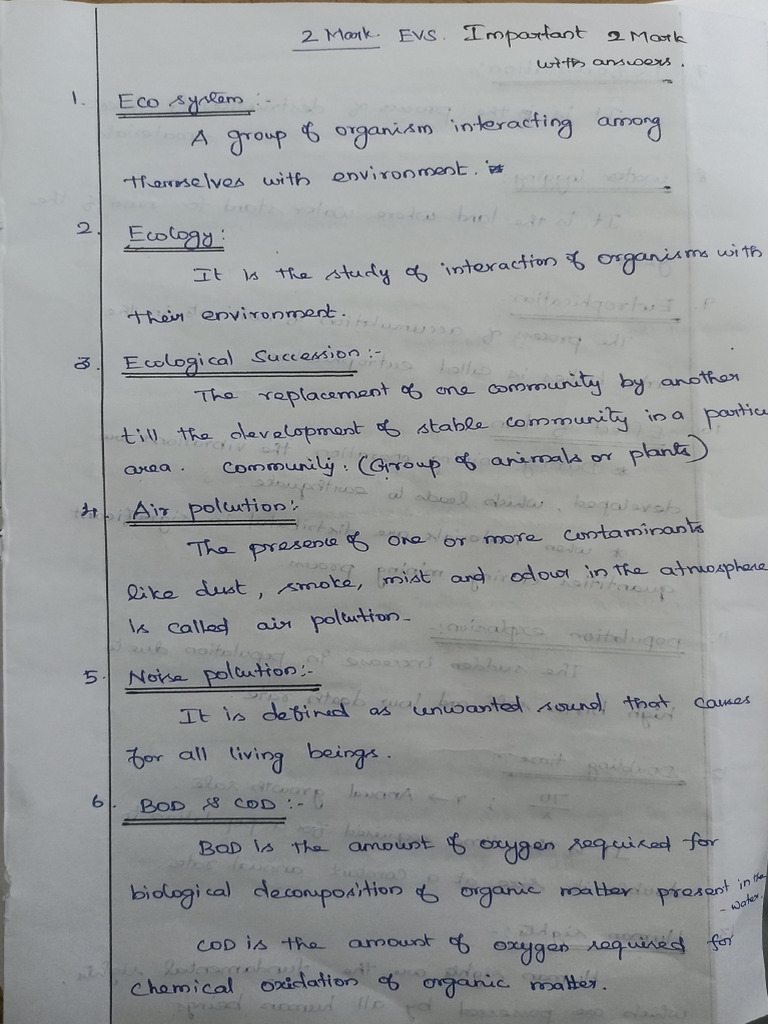 2 Mark. EVS. Important 2 Mark
with answers.
1. Eco system :-
A group of organism interacting among
themselves with environment.
2. Ecology:
It is the study of interaction of organisms with
their environment.
3. Ecological Succession :-
The replacement of one community by another
till the development of stable community in a particu
area. Community: (Group of animals or plants)
4. Air pollution :-
The presence of one or more contaminants
like dust, smoke, mist and odour in the atmosphere
is called air pollution.
5. Noise pollution :-
It is defined as unwanted sound that causes
for all living beings.
6. BOD & COD :-
BOD is the amount of oxygen required for
biological decomposition of organic matter present in the
- water.
COD is the amount of oxygen required for
chemical oxidation of organic matter.